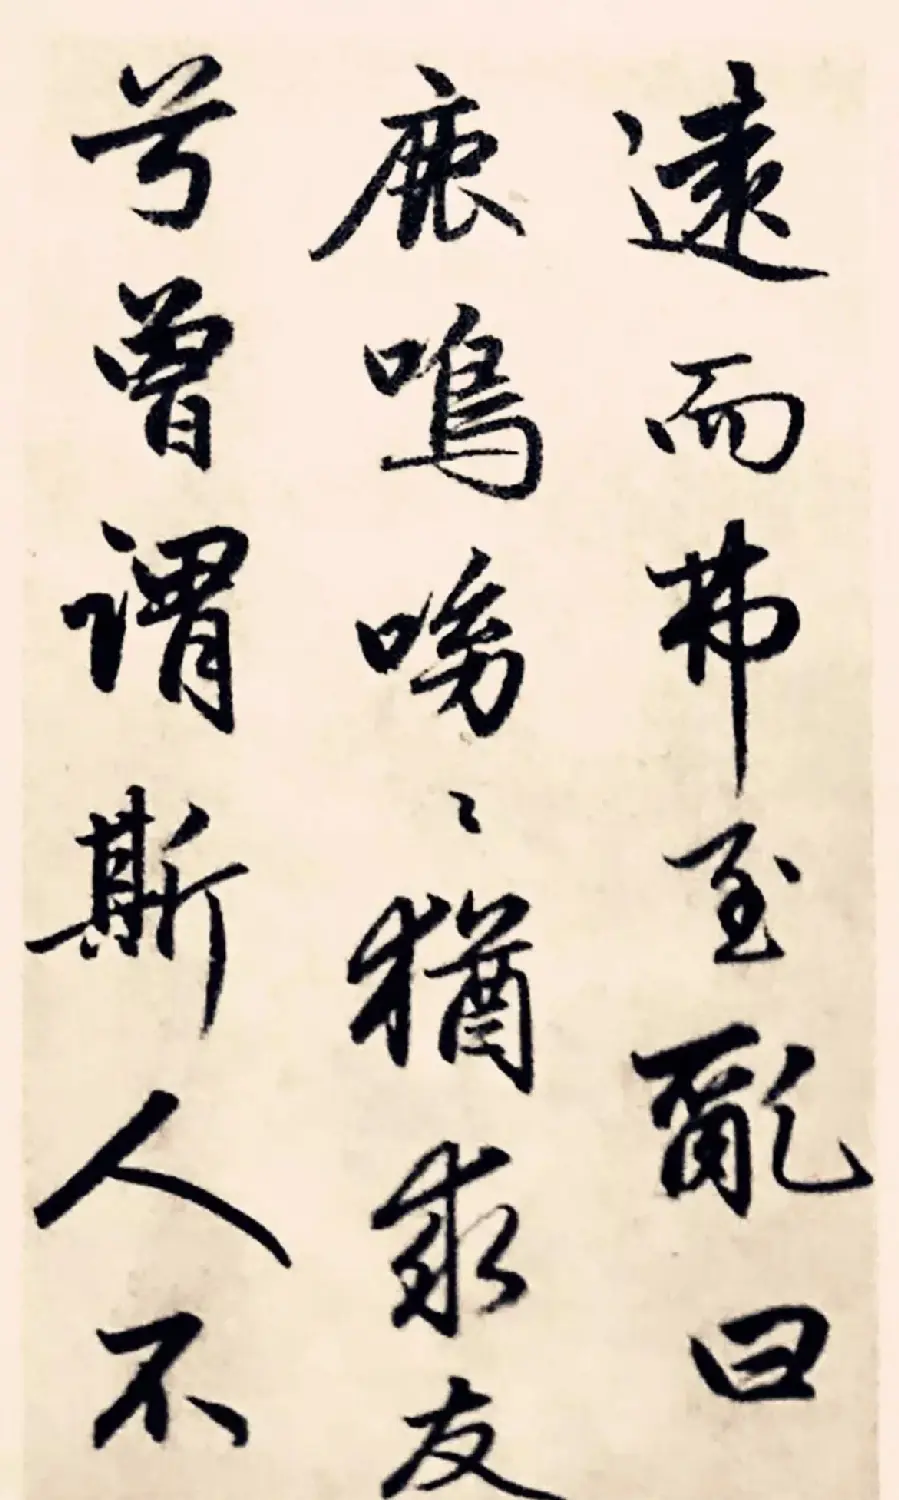 遠而弗至亂曰
鹿鳴呦〻猶求友
兮曾謂斯人不